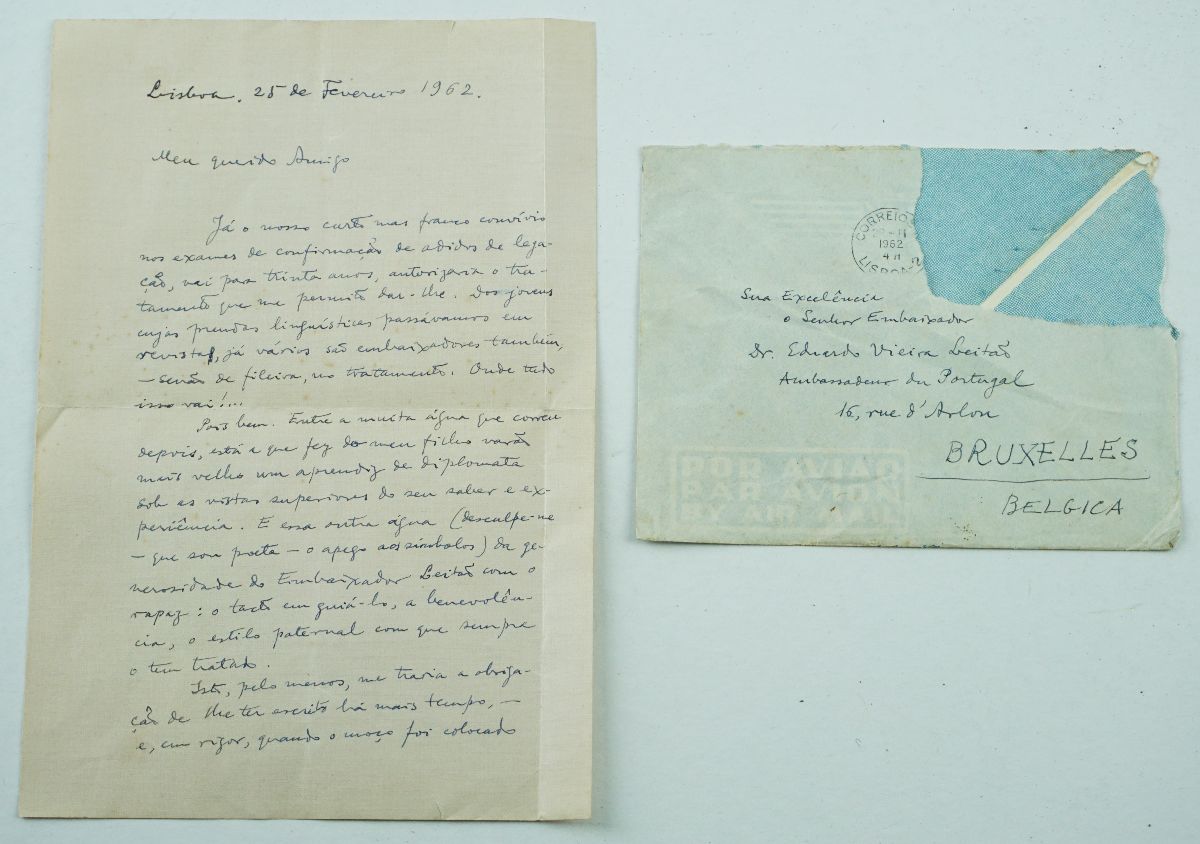 Lisboa, 25 de Fevereiro 1962.
Meu querido Amigo
Já o nosso curto mas franco convívio
nos exames de confirmação de adidos de lega-
ção, vai para trinta anos, autorizaria o tra-
tamento que me permito dar-lhe. Dos jovens
cujas prendas linguísticas passávamos em
revista, já vários são embaixadores também,
— senão de fileira, no tratamento. Onde tudo
isso vai!...
Pois bem. Entre a muita água que correu
depois, está a que fez do meu filho varão
mais velho um aprendiz de diplomata
sob as vistas superiores do seu saber e ex-
periência. E essa outra água (desculpe-me
— que sou poeta — o apego aos símbolos) da ge-
nerosidade do Embaixador Leitão com o
rapaz: o tacto em guiá-lo, a benevolên-
cia, o estilo paternal com que sempre
o tem tratado.
Isto, pelo menos, me traria a obriga-
ção de lhe ter escrito há mais tempo, —
e, em rigor, quando o moço foi colocado
CORREIO
1962
LISBOA
Sua Excelência
o Senhor Embaixador
Dr. Eduardo Vieira Leitão
Ambassadeur du Portugal
16, rue d'Arlon
BRUXELLES
BELGICA
POR AVIÃO
PAR AVION
BY AIR MAIL